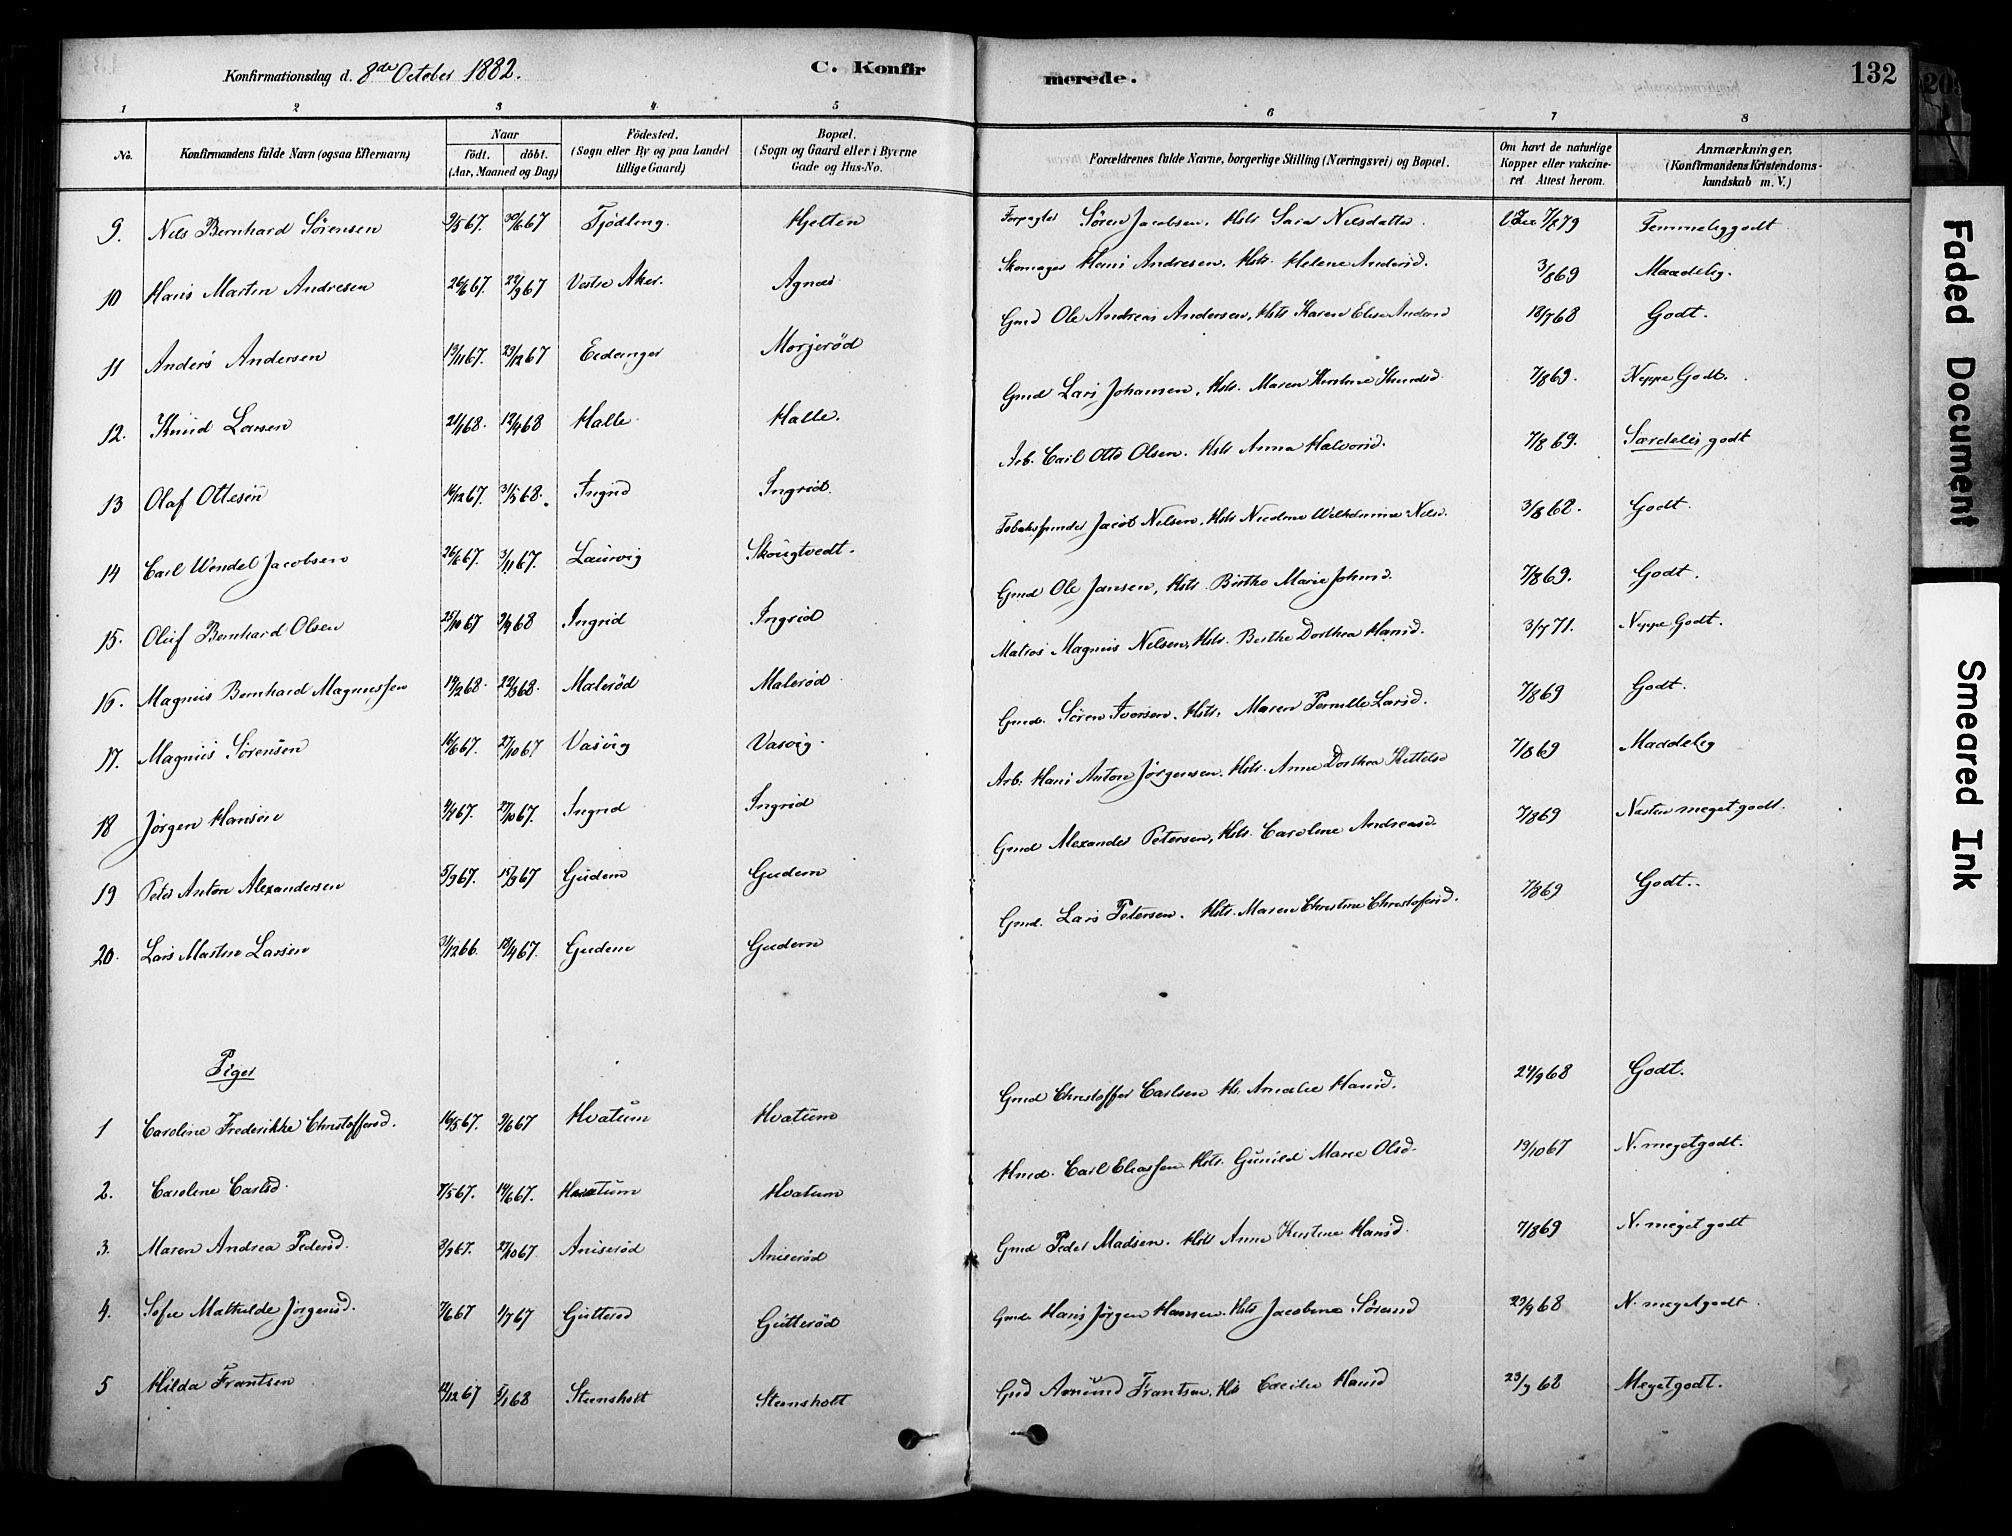 Konfirmationsdag d. 8de October 1882. C. Konfirmerede. 132
1 2 3 4 5 6 7 8
No. Konfirmandens fulde Navn (ogsaa Efternavn) Naar födt. döbt. (Aar, Maaned og Dag) Födested. (Sogn eller By og paa Landet tillige Gaard) Bopæl. (Sogn og Gaard eller i Byerne Gade og Hus-No. Forældrenes fulde Navne, borgerlige Stilling (Næringsvei) og Bopæl. Om havt de naturlige Kopper eller vakcineret Attest herom. Anmærkninger. (Konfirmandens Kristendomskundskab m. V.)
9. Nils Bernhard Sörensen 9/5 67. 30/6 67 Fjödling Hjelten Forpagter Sören Jacobsen. Hstr Sara Nilsdatter. 7/8 79 Temmeliggodt
10 Hans Martin Andresen 26/6 67. 22/9 67 Vestre Aker. Agnæs Skomager Hans Andresen. Hstr. Helene Andersd. 3/8 69 Maadelig.
11 Anders Andersen 19/11 67. 29/12 67 Eidanger Morjeröd Gmd Ole Andreas Andersen, Hstr Karen Elise Andersd 18/7 68 Godt.
12. Knud Larsen 21/1 68. 12/4 68 Halle Halle. Gmd Lars Johansen, Hstr. Maren Kirstine Knudsd 7/8 69. Neppe Godt.
13 Olaf Ottesen 16/12 67. 31/5 68. Ingrid Ingrid. Arb. Carl Otto Olsen. Hstr Anna Halvorsd. 7/8 69. Særdeles godt
14 Carl Wendel Jacobsen 26/6 67. 3/11 67. Laurvig Skougtvedt. Tobaksspinder Jacob Nilsen, Hstr Nicoline Wilhelmine Nilsd. 3/8 68. Godt.
15. Oluf Bernhard Olsen 25/10 67 9/4 68 Ingrid Ingrid Gmd Ole Jansen, Hstr. Birthe Marie Johnsd. 7/8 69. Godt.
16. Magnus Bernhard Magnussen 14/2 68. 22/3 68. Maleröd Maleröd Matros Magnus Nilsen, Hstr. Berthe Dorthea Hansd. 3/7 71. Neppe Godt.
17. Magnus Sörensen 16/6 67. 27/10 67 Vasvig Vasvig. Gmd. Sören Iversen. Hstr. Maren Pernille Larsd. 7/8 69 Godt.
18 Jörgen Hansen 4/4 67. 27/10 67. Ingrid Ingrid Arb. Hans Anton Jörgensen. Hstr. Anne Dorthea Kittelsd 7/8 69 Maadelig
19 Peter Anton Alexandersen 5/9 67. 15/9 67 Gudem Gudem Gmd Alexander Petersen, Hstr. Caroline Andreasd. 7/8 69 Næsten meget godt.
20. Lars Martin Larsen 31/12 66. 18/4 67. Gudem Gudem Gmd. Lars Petersen. Hstr. Maren Christine Christofersd. 7/8 69 Godt.
Piger
1 Caroline Frederikke Christoffersd. 16/5 67. 9/6 67 Hvatum Hvatum Gmd Christoffer Carlsen Hs. Amalie Hansd. 24/9 68 Godt.
2. Caroline Carlsd. 7/5 67. 14/6 67. Hvatum Hvatum Hmd. Carl Eliassen Hstr. Gunild Marie Olsd. 19/10 67 N. meget godt.
3. Maren Andrea Pedersd. 3/9 67. 27/10 67. Aniseröd Aniseröd Gmd Peder Madsen. Hstr Anne Kirstine Hansd. 7/8 69 N. meget godt
4. Sofie Mathilde Jörgensd. 7/6 67 1/7 67 Gutteröd Gutteröd Gmd. Hans Jörgen Hansen. Hstr Jacobine Sörensd 23/9 68 N. meget godt.
5 Hilda Frantsen 12/12 67 5/1 68 Steensholt Steensholt Gmd Amund Frantsen. Hs Cecilie Hansd 23/9 68 Meget godt.
Faded Document
Smeared Ink